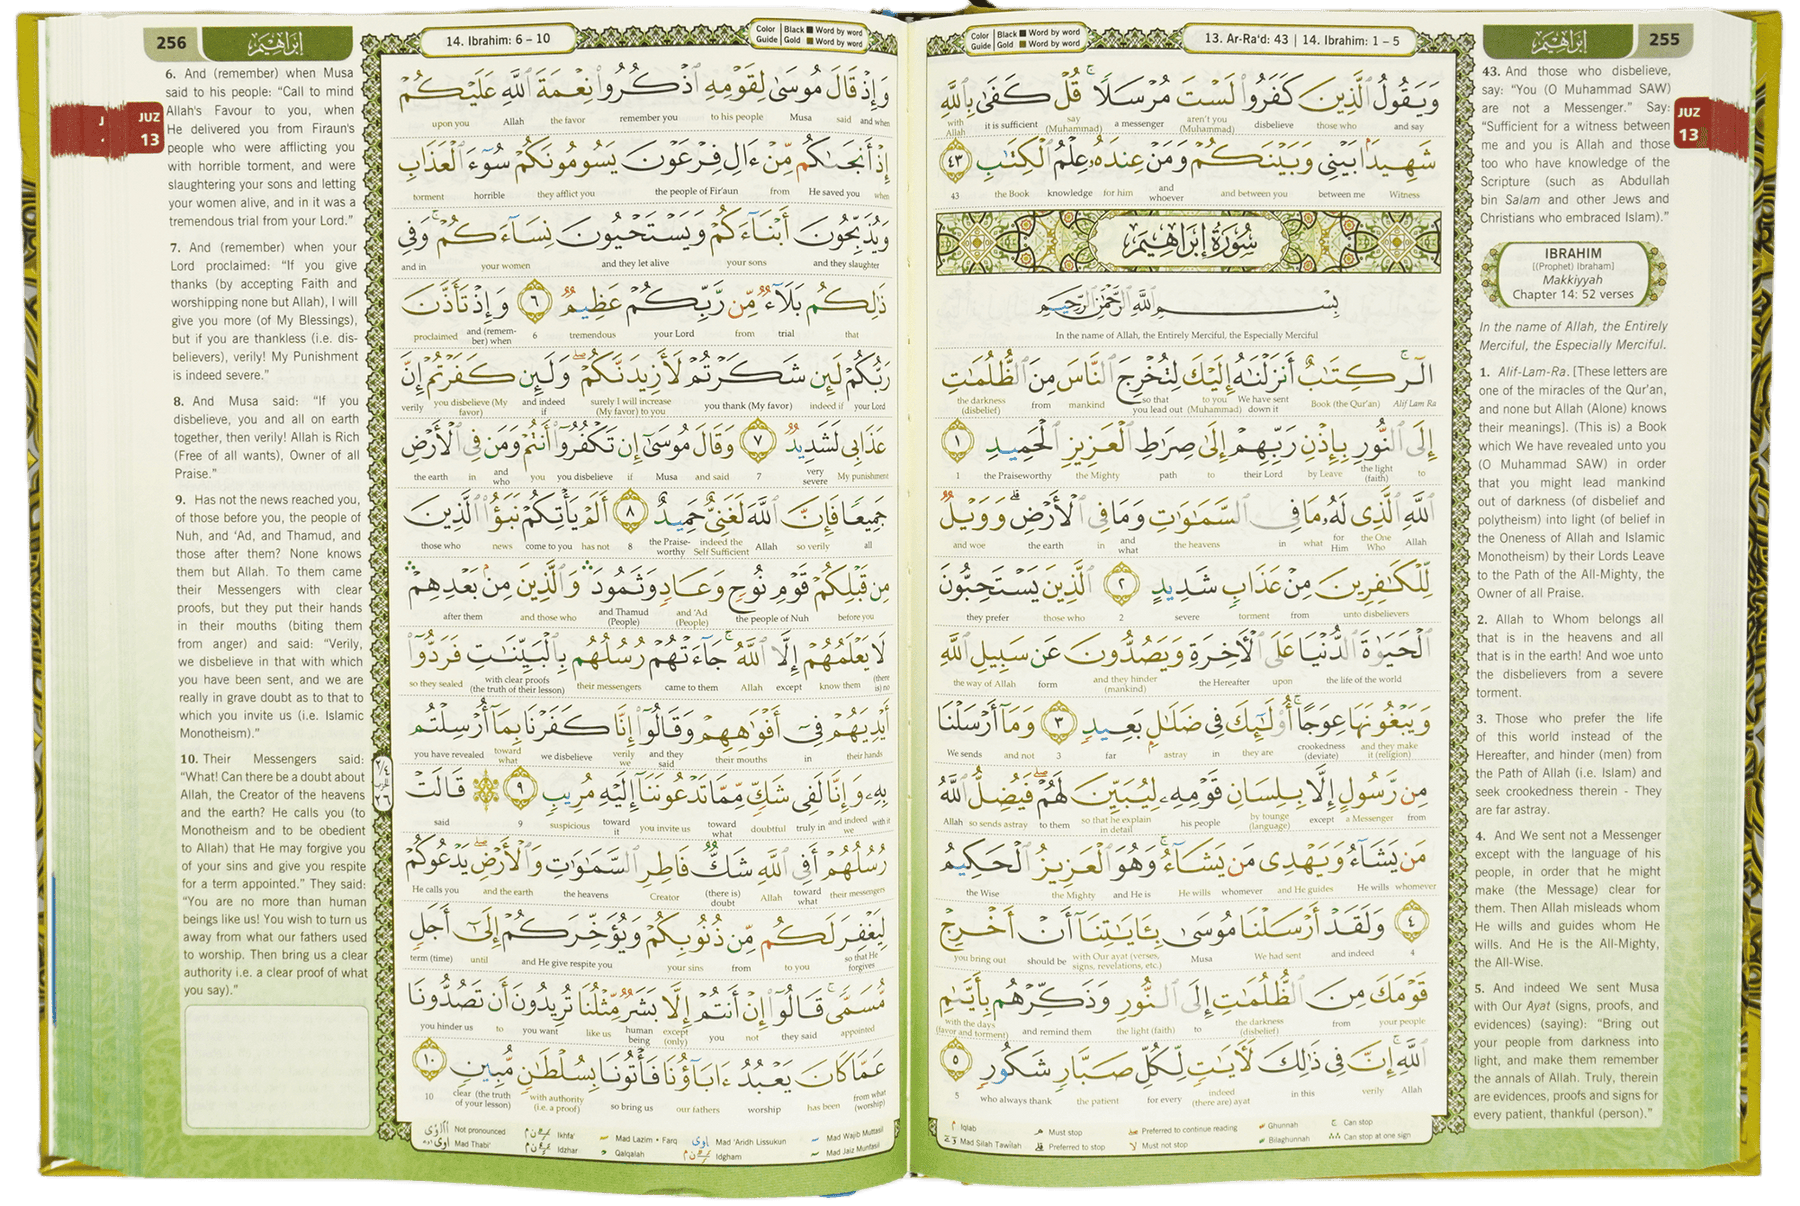 Color Guide | Black Word by word
Gold Word by word
13. Ar-Ra'd: 43 | 14. Ibrahim: 1 – 5
إبراهيم
255
JUZ
13
وَيَقُولُ الَّذِينَ كَفَرُوا لَسْتَ مُرْسَلًا ۚ قُلْ كَفَىٰ بِاللَّهِ
and say those who disbelieve aren't you (Muhammad) a messenger say (Muhammad) it is sufficient with Allah
شَهِيدًا بَيْنِي وَبَيْنَكُمْ وَمَنْ عِندَهُ عِلْمُ الْكِتَابِ ٤٣
Witness between me and between you and whoever for him knowledge the Book 43
سُورَةُ إِبْرَاهِيمَ
بِسْمِ اللَّهِ الرَّحْمَٰنِ الرَّحِيمِ
In the name of Allah, the Entirely Merciful, the Especially Merciful
الٓر ۚ كِتَابٌ أَنزَلْنَاهُ إِلَيْكَ لِتُخْرِجَ النَّاسَ مِنَ الظُّلُمَاتِ
Alif Lam Ra Book (the Qur'an) We have sent down it to you (Muhammad) so that you lead out mankind from the darkness (disbelief)
إِلَى النُّورِ بِإِذْنِ رَبِّهِمْ إِلَىٰ صِرَاطِ الْعَزِيزِ الْحَمِيدِ ١
to the light (faith) by Leave their Lord to path the Mighty the Praiseworthy 1
اللَّهِ الَّذِي لَهُ مَا فِي السَّمَاوَاتِ وَمَا فِي الْأَرْضِ ۗ وَوَيْلٌ
Allah the One Who for Him what in the heavens and what in the earth and woe
لِّلْكَافِرِينَ مِنْ عَذَابٍ شَدِيدٍ ٢ الَّذِينَ يَسْتَحِبُّونَ
unto disbelievers from torment severe 2 those who they prefer
الْحَيَاةَ الدُّنْيَا عَلَى الْآخِرَةِ وَيَصُدُّونَ عَن سَبِيلِ اللَّهِ
the life of the world upon the Hereafter and they hinder (mankind) form the way of Allah
وَيَبْغُونَهَا عِوَجًا ۚ أُولَٰئِكَ فِي ضَلَالٍ بَعِيدٍ ٣ وَمَا أَرْسَلْنَا
and they make it (religion) crookedness (deviate) they are in astray far 3 and not We sends
مِن رَّسُولٍ إِلَّا بِلِسَانِ قَوْمِهِ لِيُبَيِّنَ لَهُمْ ۖ فَيُضِلُّ اللَّهُ
from a Messenger except by tounge (language) his people so that he explain in detail to them so sends astray Allah
مَن يَشَاءُ وَيَهْدِي مَن يَشَاءُ ۚ وَهُوَ الْعَزِيزُ الْحَكِيمُ
whomever He wills and He guides whomever He wills and He is the Mighty the Wise
٤ وَلَقَدْ أَرْسَلْنَا مُوسَىٰ بِآيَاتِنَا أَنْ أَخْرِجْ
4 and indeed We had sent Musa with Our ayat (verses, signs, revelations, etc.) should be you bring out
قَوْمَكَ مِنَ الظُّلُمَاتِ إِلَى النُّورِ وَذَكِّرْهُم بِأَيَّامِ
your people from the darkness (disbelief) to the light (faith) and remind them with the days (favor and torment)
اللَّهِ ۚ إِنَّ فِي ذَٰلِكَ لَآيَاتٍ لِّكُلِّ صَبَّارٍ شَكُورٍ ٥
Allah verily in this indeed (there are) ayat for every the patient who always thank 5
43. And those who disbelieve,
say: "You (O Muhammad SAW)
are not a Messenger." Say:
"Sufficient for a witness between
me and you is Allah and those
too who have knowledge of the
Scripture (such as Abdullah
bin Salam and other Jews and
Christians who embraced Islam)."
IBRAHIM
[(Prophet) Ibraham]
Makkiyyah
Chapter 14: 52 verses
In the name of Allah, the Entirely
Merciful, the Especially Merciful.
1. Alif-Lam-Ra. [These letters are
one of the miracles of the Qur'an,
and none but Allah (Alone) knows
their meanings]. (This is) a Book
which We have revealed unto you
(O Muhammad SAW) in order
that you might lead mankind
out of darkness (of disbelief and
polytheism) into light (of belief in
the Oneness of Allah and Islamic
Monotheism) by their Lords Leave
to the Path of the All-Mighty, the
Owner of all Praise.
2. Allah to Whom belongs all
that is in the heavens and all
that is in the earth! And woe unto
the disbelievers from a severe
torment.
3. Those who prefer the life
of this world instead of the
Hereafter, and hinder (men) from
the Path of Allah (i.e. Islam) and
seek crookedness therein - They
are far astray.
4. And We sent not a Messenger
except with the language of his
people, in order that he might
make (the Message) clear for
them. Then Allah misleads whom
He wills and guides whom He
wills. And He is the All-Mighty,
the All-Wise.
5. And indeed We sent Musa
with Our Ayat (signs, proofs, and
evidences) (saying): "Bring out
your people from darkness into
light, and make them remember
the annals of Allah. Truly, therein
are evidences, proofs and signs for
every patient, thankful (person)."
Iqlab Must stop Preferred to continue reading Ghunnah Can stop
Mad Silah Tawilah Preferred to stop Must not stop Bilaghunnah Can stop at one sign
256
إبراهيم
14. Ibrahim: 6 – 10
Color Guide | Black Word by word
Gold Word by word
JUZ
13
وَإِذْ قَالَ مُوسَىٰ لِقَوْمِهِ اذْكُرُوا نِعْمَةَ اللَّهِ عَلَيْكُمْ
and when said Musa to his people remember you the favor Allah upon you
إِذْ أَنجَاكُم مِّنْ آلِ فِرْعَوْنَ يَسُومُونَكُمْ سُوءَ الْعَذَابِ
when He saved you from the people of Fir'aun they afflict you horrible torment
وَيُذَبِّحُونَ أَبْنَاءَكُمْ وَيَسْتَحْيُونَ نِسَاءَكُمْ ۚ وَفِي
and they slaughter your sons and they let alive your women and in
ذَٰلِكُم بَلَاءٌ مِّن رَّبِّكُمْ عَظِيمٌ ٦ وَإِذْ تَأَذَّنَ
that trial from your Lord tremendous 6 and (remember) when proclaimed
رَبُّكُمْ لَئِن شَكَرْتُمْ لَأَزِيدَنَّكُمْ ۖ وَلَئِن كَفَرْتُمْ إِنَّ
your Lord indeed if you thank (My favor) surely I will increase (My favor) to you and indeed if you disbelieve (My favor) verily
عَذَابِي لَشَدِيدٌ ٧ وَقَالَ مُوسَىٰ إِن تَكْفُرُوا أَنتُمْ وَمَن فِي الْأَرْضِ
My punishment very severe 7 and said Musa if you disbelieve you and who in the earth
جَمِيعًا فَإِنَّ اللَّهَ لَغَنِيٌّ حَمِيدٌ ٨ أَلَمْ يَأْتِكُمْ نَبَؤُا الَّذِينَ
all so verily Allah indeed the Self Sufficient the Praiseworthy 8 has not come to you news those who
مِن قَبْلِكُمْ قَوْمِ نُوحٍ وَعَادٍ وَثَمُودَ ۛ وَالَّذِينَ مِن بَعْدِهِمْ ۛ
before you the people of Nuh and 'Ad (People) and Thamud (People) and those who after them
لَا يَعْلَمُهُمْ إِلَّا اللَّهُ ۚ جَاءَتْهُمْ رُسُلُهُم بِالْبَيِّنَاتِ فَرَدُّوا
(there is) no know them except Allah came to them their messengers with clear proofs (the truth of their lesson) so they sealed
أَيْدِيَهُمْ فِي أَفْوَاهِهِمْ وَقَالُوا إِنَّا كَفَرْنَا بِمَا أُرْسِلْتُم
their hands in their mouths and they said verily we we disbelieve toward what you have revealed
بِهِ وَإِنَّا لَفِي شَكٍّ مِّمَّا تَدْعُونَنَا إِلَيْهِ مُرِيبٍ ٩ ۞ قَالَتْ
with it and indeed we truly in doubtful toward what you invite us toward it suspicious 9 said
رُسُلُهُمْ أَفِي اللَّهِ شَكٌّ فَاطِرِ السَّمَاوَاتِ وَالْأَرْضِ ۖ يَدْعُوكُمْ
their messengers toward what Allah (there is) doubt Creator the heavens and the earth He calls you
لِيَغْفِرَ لَكُم مِّن ذُنُوبِكُمْ وَيُؤَخِّرَكُمْ إِلَىٰ أَجَلٍ
so that He forgives to you from your sins and He give respite you until term (time)
مُّسَمًّى ۚ قَالُوا إِنْ أَنتُمْ إِلَّا بَشَرٌ مِّثْلُنَا تُرِيدُونَ أَن تَصُدُّونَا
appointed they said not you except (only) human being like us you want to you hinder us
عَمَّا كَانَ يَعْبُدُ آبَاؤُنَا فَأْتُونَا بِسُلْطَانٍ مُّبِينٍ ١٠
from what (worship) has been worship our fathers so bring us with authority (i.e. a proof) clear (the truth of your lesson) 10
6. And (remember) when Musa
said to his people: "Call to mind
Allah's Favour to you, when
He delivered you from Firaun's
people who were afflicting you
with horrible torment, and were
slaughtering your sons and letting
your women alive, and in it was a
tremendous trial from your Lord."
7. And (remember) when your
Lord proclaimed: "If you give
thanks (by accepting Faith and
worshipping none but Allah), I will
give you more (of My Blessings),
but if you are thankless (i.e. dis-
believers), verily! My Punishment
is indeed severe."
8. And Musa said: "If you
disbelieve, you and all on earth
together, then verily! Allah is Rich
(Free of all wants), Owner of all
Praise."
9. Has not the news reached you,
of those before you, the people of
Nuh, and 'Ad, and Thamud, and
those after them? None knows
them but Allah. To them came
their Messengers with clear
proofs, but they put their hands
in their mouths (biting them
from anger) and said: "Verily,
we disbelieve in that with which
you have been sent, and we are
really in grave doubt as to that to
which you invite us (i.e. Islamic
Monotheism)."
10. Their Messengers said:
"What! Can there be a doubt about
Allah, the Creator of the heavens
and the earth? He calls you (to
Monotheism and to be obedient
to Allah) that He may forgive you
of your sins and give you respite
for a term appointed." They said:
"You are no more than human
beings like us! You wish to turn us
away from what our fathers used
to worship. Then bring us a clear
authority i.e. a clear proof of what
you say)."
Not pronounced Ikhfa' Mad Lazim • Farq Mad 'Aridh Lissukun Mad Wajib Muttasil
Mad Thabi' Idzhar Qalqalah Idgham Mad Jaiz Munfasil